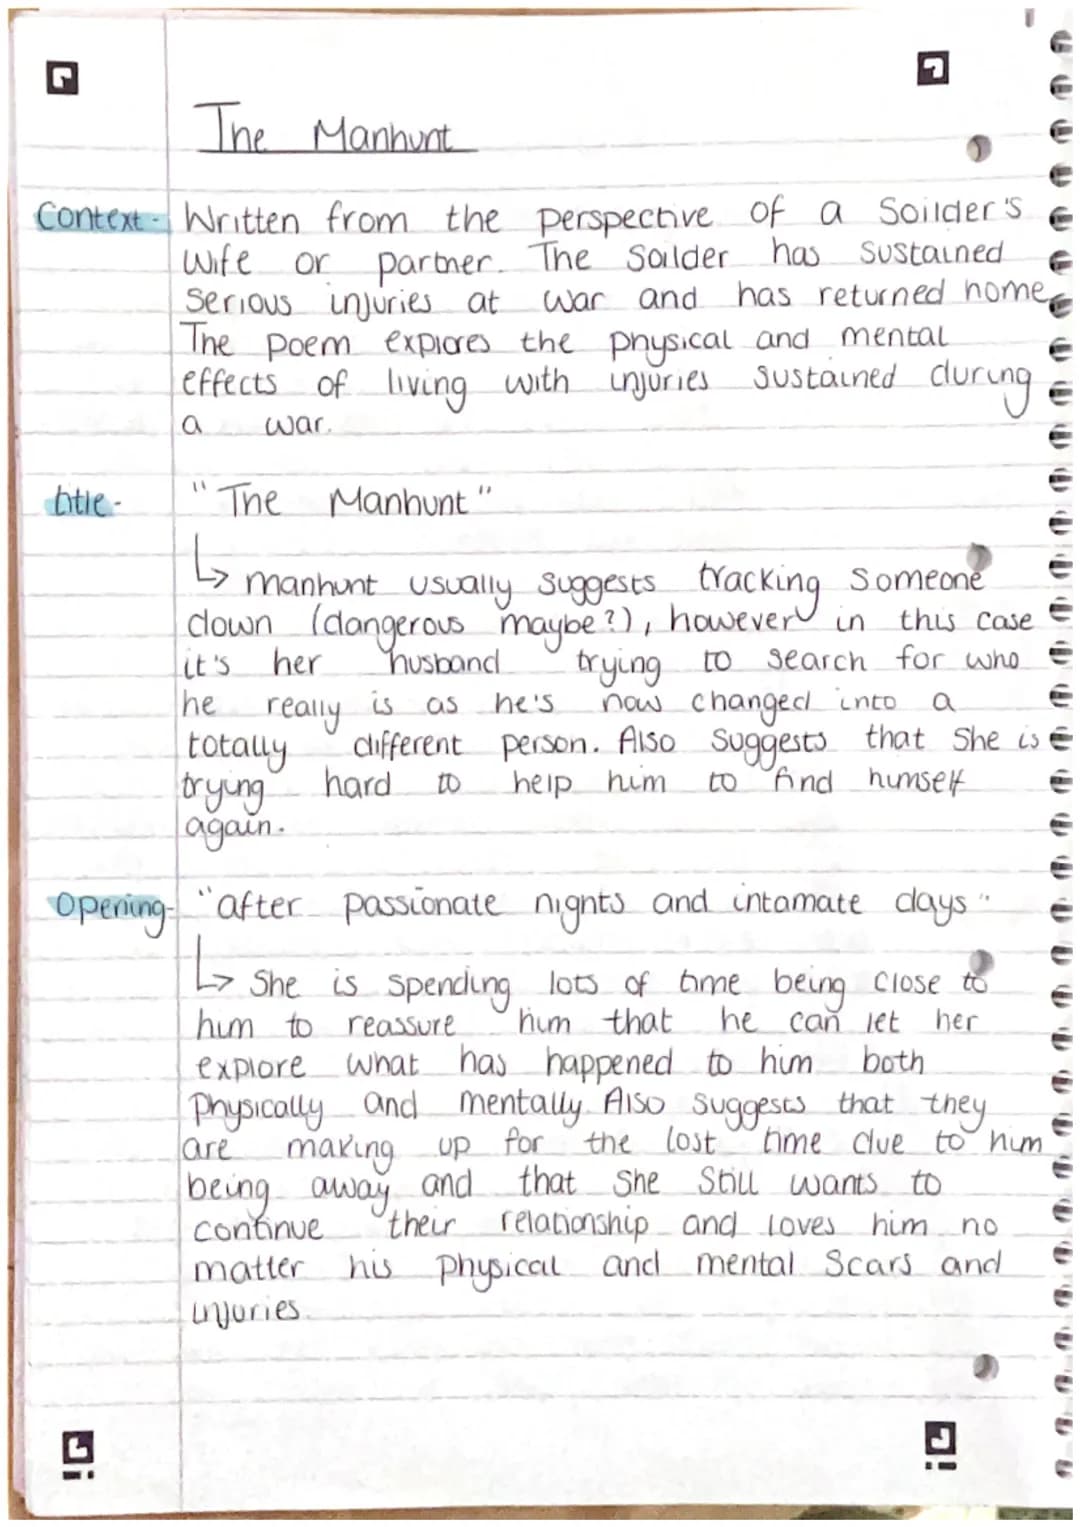 The Manhunt
Context - Written from the perspective of a Soilder's
wife or partner. The Soilder has sustained
serious injuries at war and has returned home
The poem explores the physical and mental
effects of living with injuries sustained during
a war.
title - "The Manhunt"
↳ manhunt usually suggests tracking someone
down (dangerous maybe?), however in this case
it's her husband trying to search for who
he really is as he's now changed into a
totally different person. Also suggests that she is
trying hard to help him to find himself
again.
Opening - "after passionate nights and intamate days"
↳ She is spending lots of time being close to
him to reassure him that he can let her
explore what has happened to him both
physically and mentally. Also suggests that they
are making up for the lost time due to him
being away and that she still wants to
continue their relationship and loves him no
matter his physical and mental scars and
injuries.